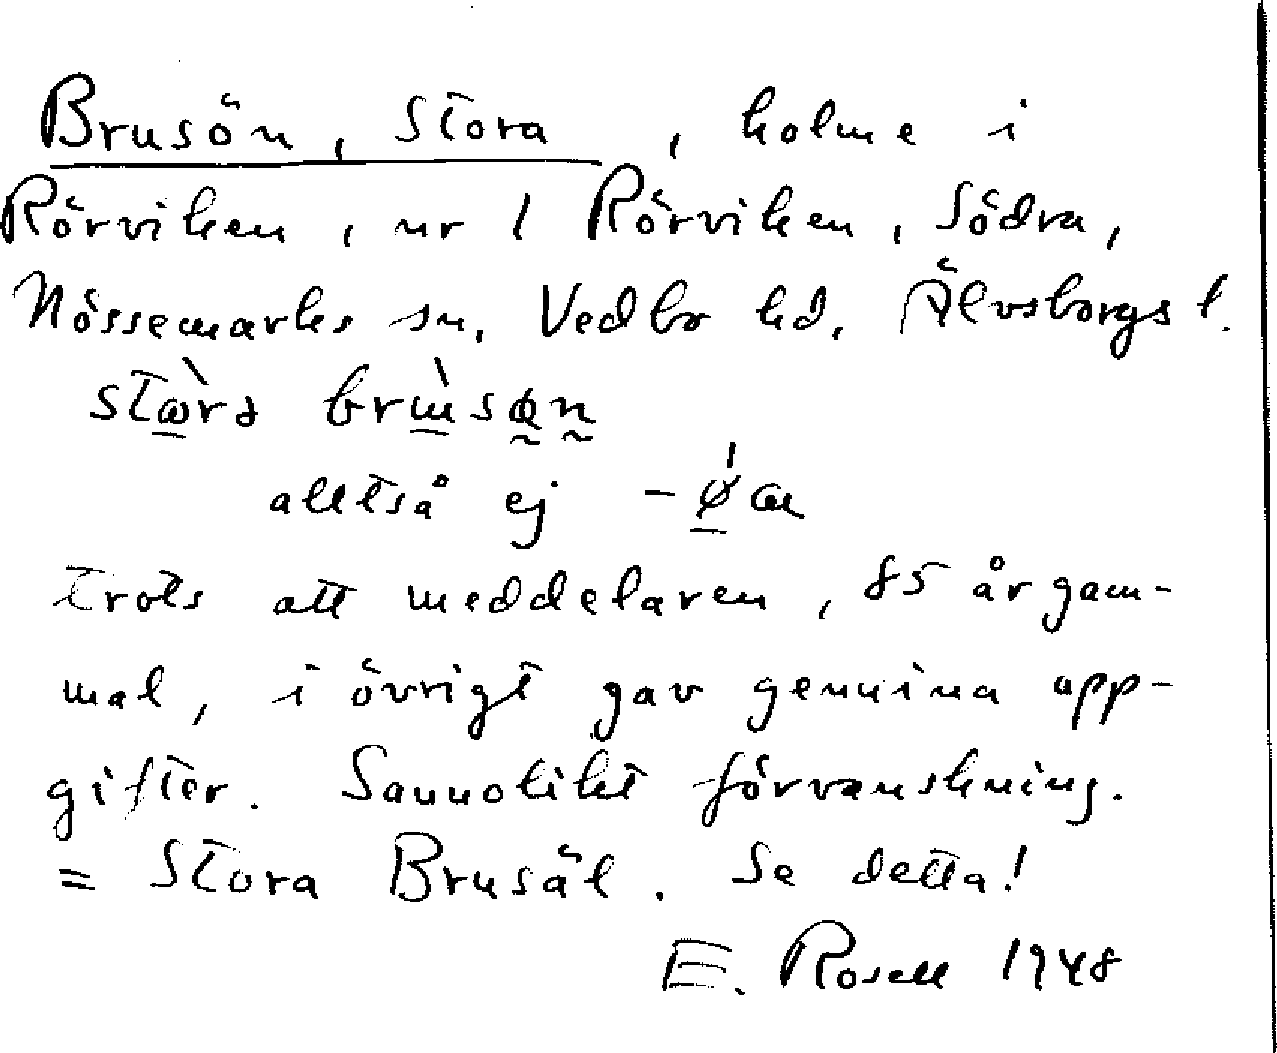 Brusön, Stora, holme i
Rörviken, nr 1 Rörviken, Södra,
Nössemarks sn, Vedbo hd, Älvsborgs l.
alltså ej
trots att meddelaren, 85 år gam-
mal, i övrigt gav genuina upp-
gifter. Sannolikt förvanskning.
= Stora Brusäl. Se detta!
E. Rosell 1948